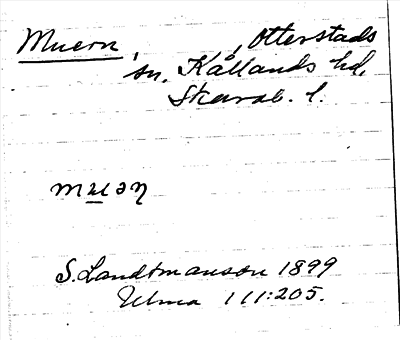 Muern, , Otterstads
sn. Kållands hd,
Skarab. l.
S. Landtmanson 1899
Ulma 111:205.